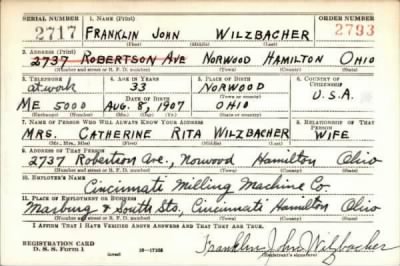 SERIAL NUMBER 1. NAME (Print) ORDER NUMBER
2717 FRANKLIN JOHN WILZBACHER 2793
(First) (Middle) (Last)
2. ADDRESS (Print)
2737 ROBERTSON AVE NORWOOD HAMILTON OHIO
(Number and street or R. F. D. number) (Town) (County) (State)
3. TELEPHONE 4. AGE IN YEARS 5. PLACE OF BIRTH 6. COUNTRY OF CITIZENSHIP
at work 33 NORWOOD
DATE OF BIRTH (Town or county) U.S.A.
ME 5000 AUG. 8, 1907 OHIO
(Exchange) (Number) (Mo.) (Day) (Yr.) (State or country)
7. NAME OF PERSON WHO WILL ALWAYS KNOW YOUR ADDRESS 8. RELATIONSHIP OF THAT PERSON
MRS. CATHERINE RITA WILZBACHER WIFE
(Mr., Mrs., Miss) (First) (Middle) (Last)
9. ADDRESS OF THAT PERSON
2737 Robertson Ave., Norwood Hamilton Ohio
(Number and street or R. F. D. number) (Town) (County) (State)
10. EMPLOYER'S NAME
Cincinnati Milling Machine Co.
11. PLACE OF EMPLOYMENT OR BUSINESS
Marburg & South Sts., Cincinnati Hamilton Ohio
(Number and street or R. F. D. number) (Town) (County) (State)
I AFFIRM THAT I HAVE VERIFIED ABOVE ANSWERS AND THAT THEY ARE TRUE.
REGISTRATION CARD
D. S. S. Form 1 (over) 16-17105 Franklin John Wilzbacher
(Registrant's signature)